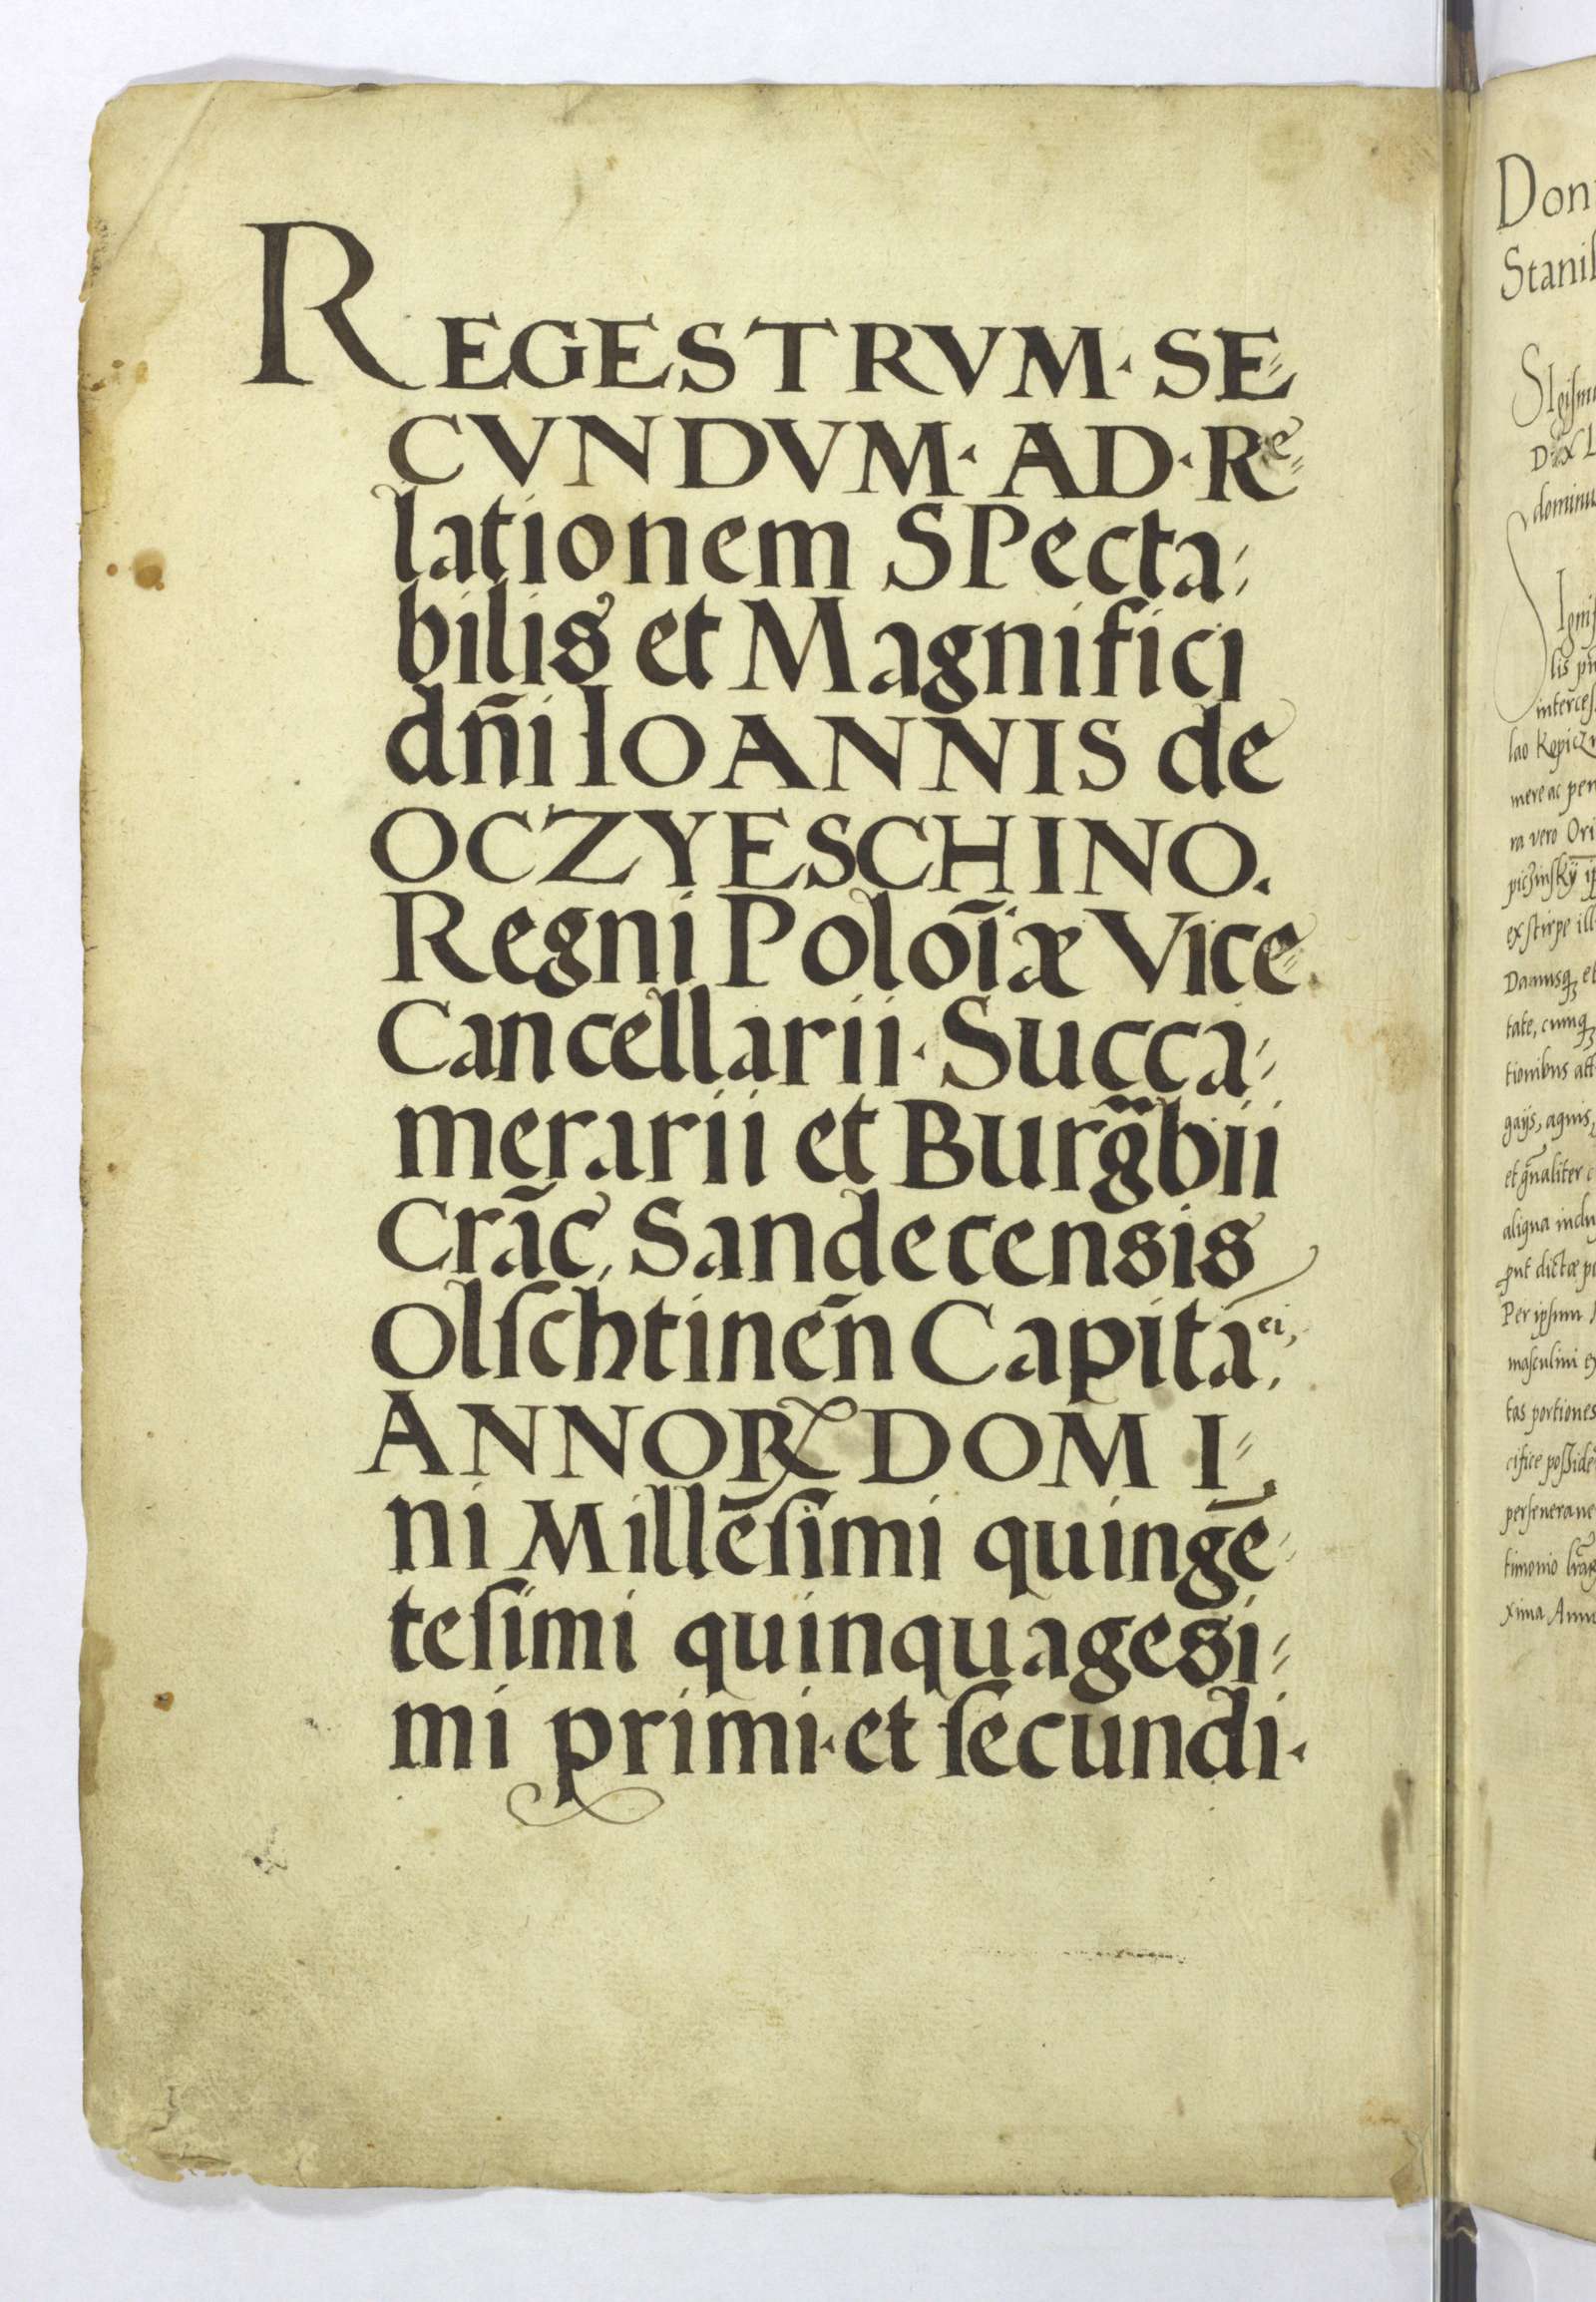 REGESTRVM · SE=
CVNDVM · AD · Re=
lationem SPecta=
bilis et Magnifici
dñi IOANNIS de
OCZYESCHINO.
Regni Poloĩæ Vice=
Cancellarii · Succa=
merarii et Burg̃bii
Crãc, Sandecensis
Olſchtineñ Capitaei,
ANNOꝜ DOMI=
ni Millẽſimi quingẽ=
teſimi quinquagesi=
mi primi · et ſecundi ·
Don
Stanil
dominu
lis pñ
lao Kopicz
mere ac per
ra vero Ori
ex stirpe ill
tate, cumq
tionibus att
gaijs, agnis,
aliqua inclu
Per ipsum
masculini e
tas portiones
cifice poſside
perseverave
xima Anno